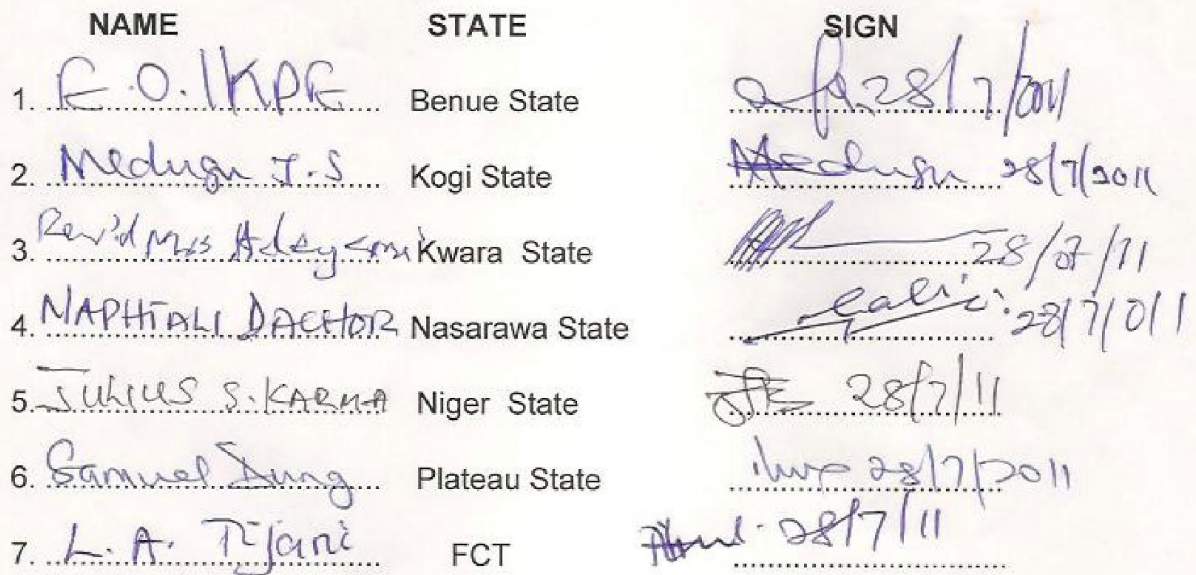 NAME STATE SIGN
1. E.O. IKPE Benue State 28/7/2011
2. Medugu J.S Kogi State Medugu 28/7/2011
3. Rev'd Mrs Adeyemi Kwara State 28/07/11
4. NAPHTALI DACHOR Nasarawa State 28/7/011
5. JULIUS S. KARMA Niger State 28/7/11
6. Samuel Dung Plateau State 28/7/2011
7. L. A. Tijani FCT 28/7/11